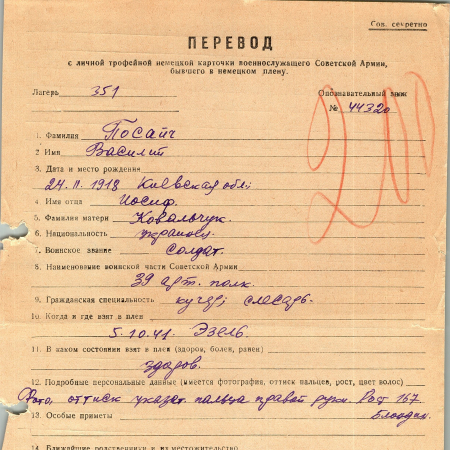 Сов. секретно
ПЕРЕВОД
с личной трофейной немецкой карточки военнослужащего Советской Армии,
бывшего в немецком плену.
Лагерь 351 Опознавательный знак
№ 44320
1. Фамилия Посайч
2 Имя Василий
3. Дата и место рождения
24. II. 1918 Киевская обл;
4. Имя отца Иосиф.
5. Фамилия матери Ковальчук.
6. Национальность украинец.
7. Воинское звание солдат.
8. Наименование воинской части Советской Армии
39 арт. полк.
9. Гражданская специальность кучер; слесарь.
10. Когда и где взят в плен
5. 10. 41. Эзель.
11. В каком состоянии взят в плен (здоров, болен, ранен)
здоров.
12. Подробные персональные данные (имеется фотография, оттиск пальцев, рост, цвет волос)
Фото, оттиск указат. пальца правой руки. Рост 167.
13. Особые приметы блондин.
14. Ближайшие родственники и их местожительство